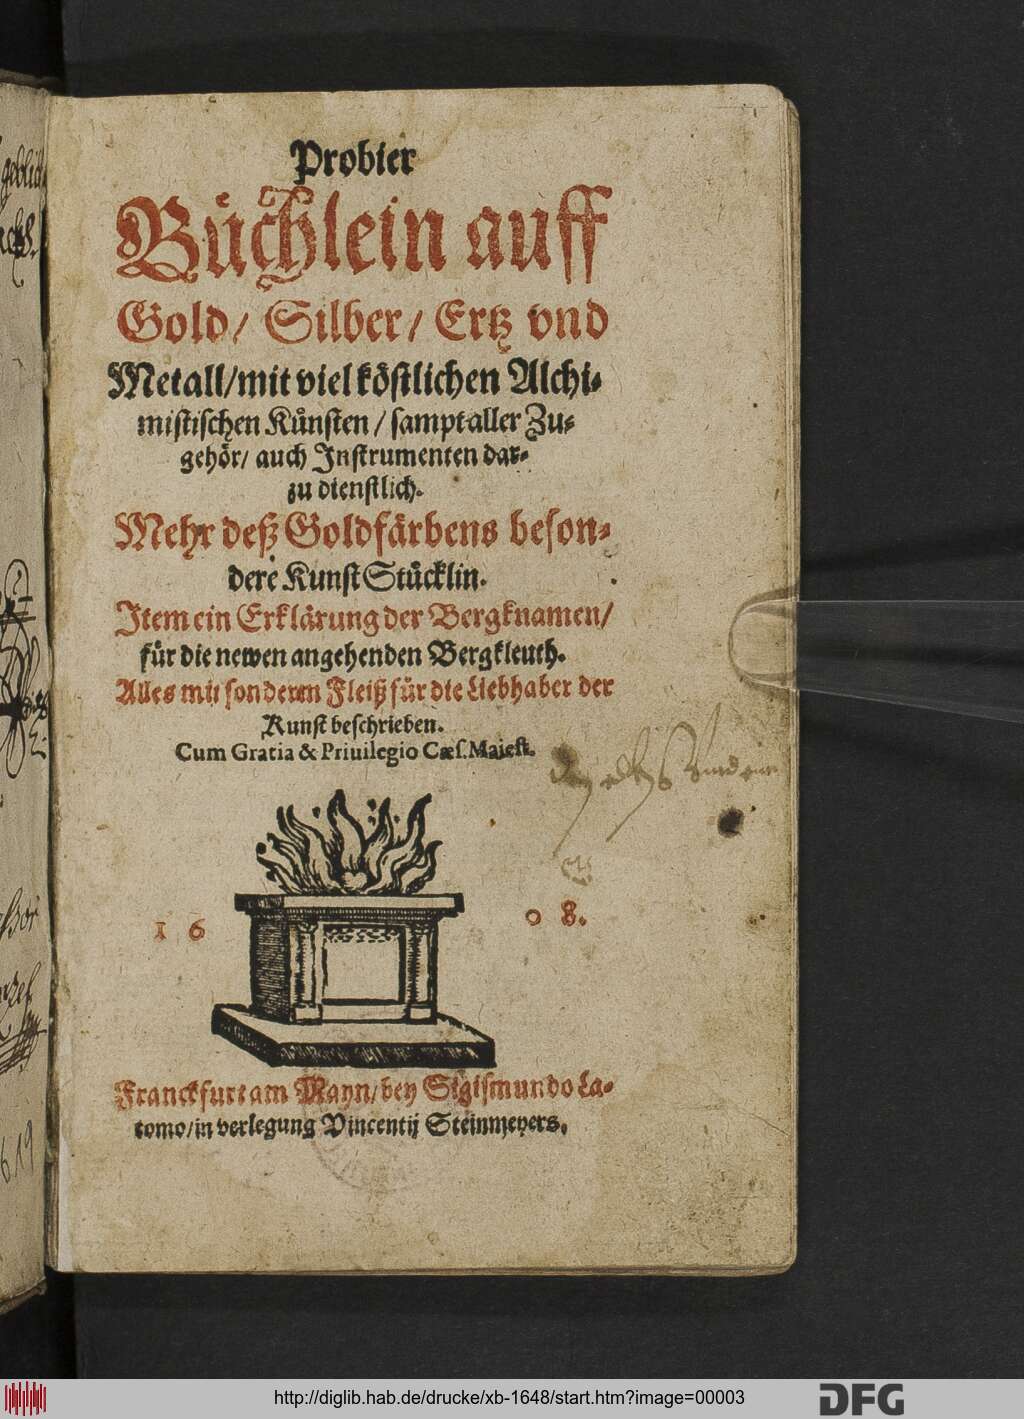 Probier
Büchlein auff
Gold/ Silber/ Ertz vnd
Metall/mit viel köstlichen Alchi-
mistischen Kůnsten/ sampt aller Zu-
gehör/ auch Instrumenten dar-
zu dienstlich.
Mehr deß Goldfärbens beson-
dere Kunst Stücklin.
Item ein Erklärung der Bergknamen/
für die newen angehenden Bergkleuth.
Alles mit sonderm Fleiß für die Liebhaber der
Kunst beschrieben.
Cum Gratia & Priuilegio Cæs. Maiest.
16 08.
Franckfurt am Mayn/bey Sigismundo La-
tomo/in verlegung Vincentij Steinmeyers.
http://diglib.hab.de/drucke/xb-1648/start.htm?image=00003
DFG